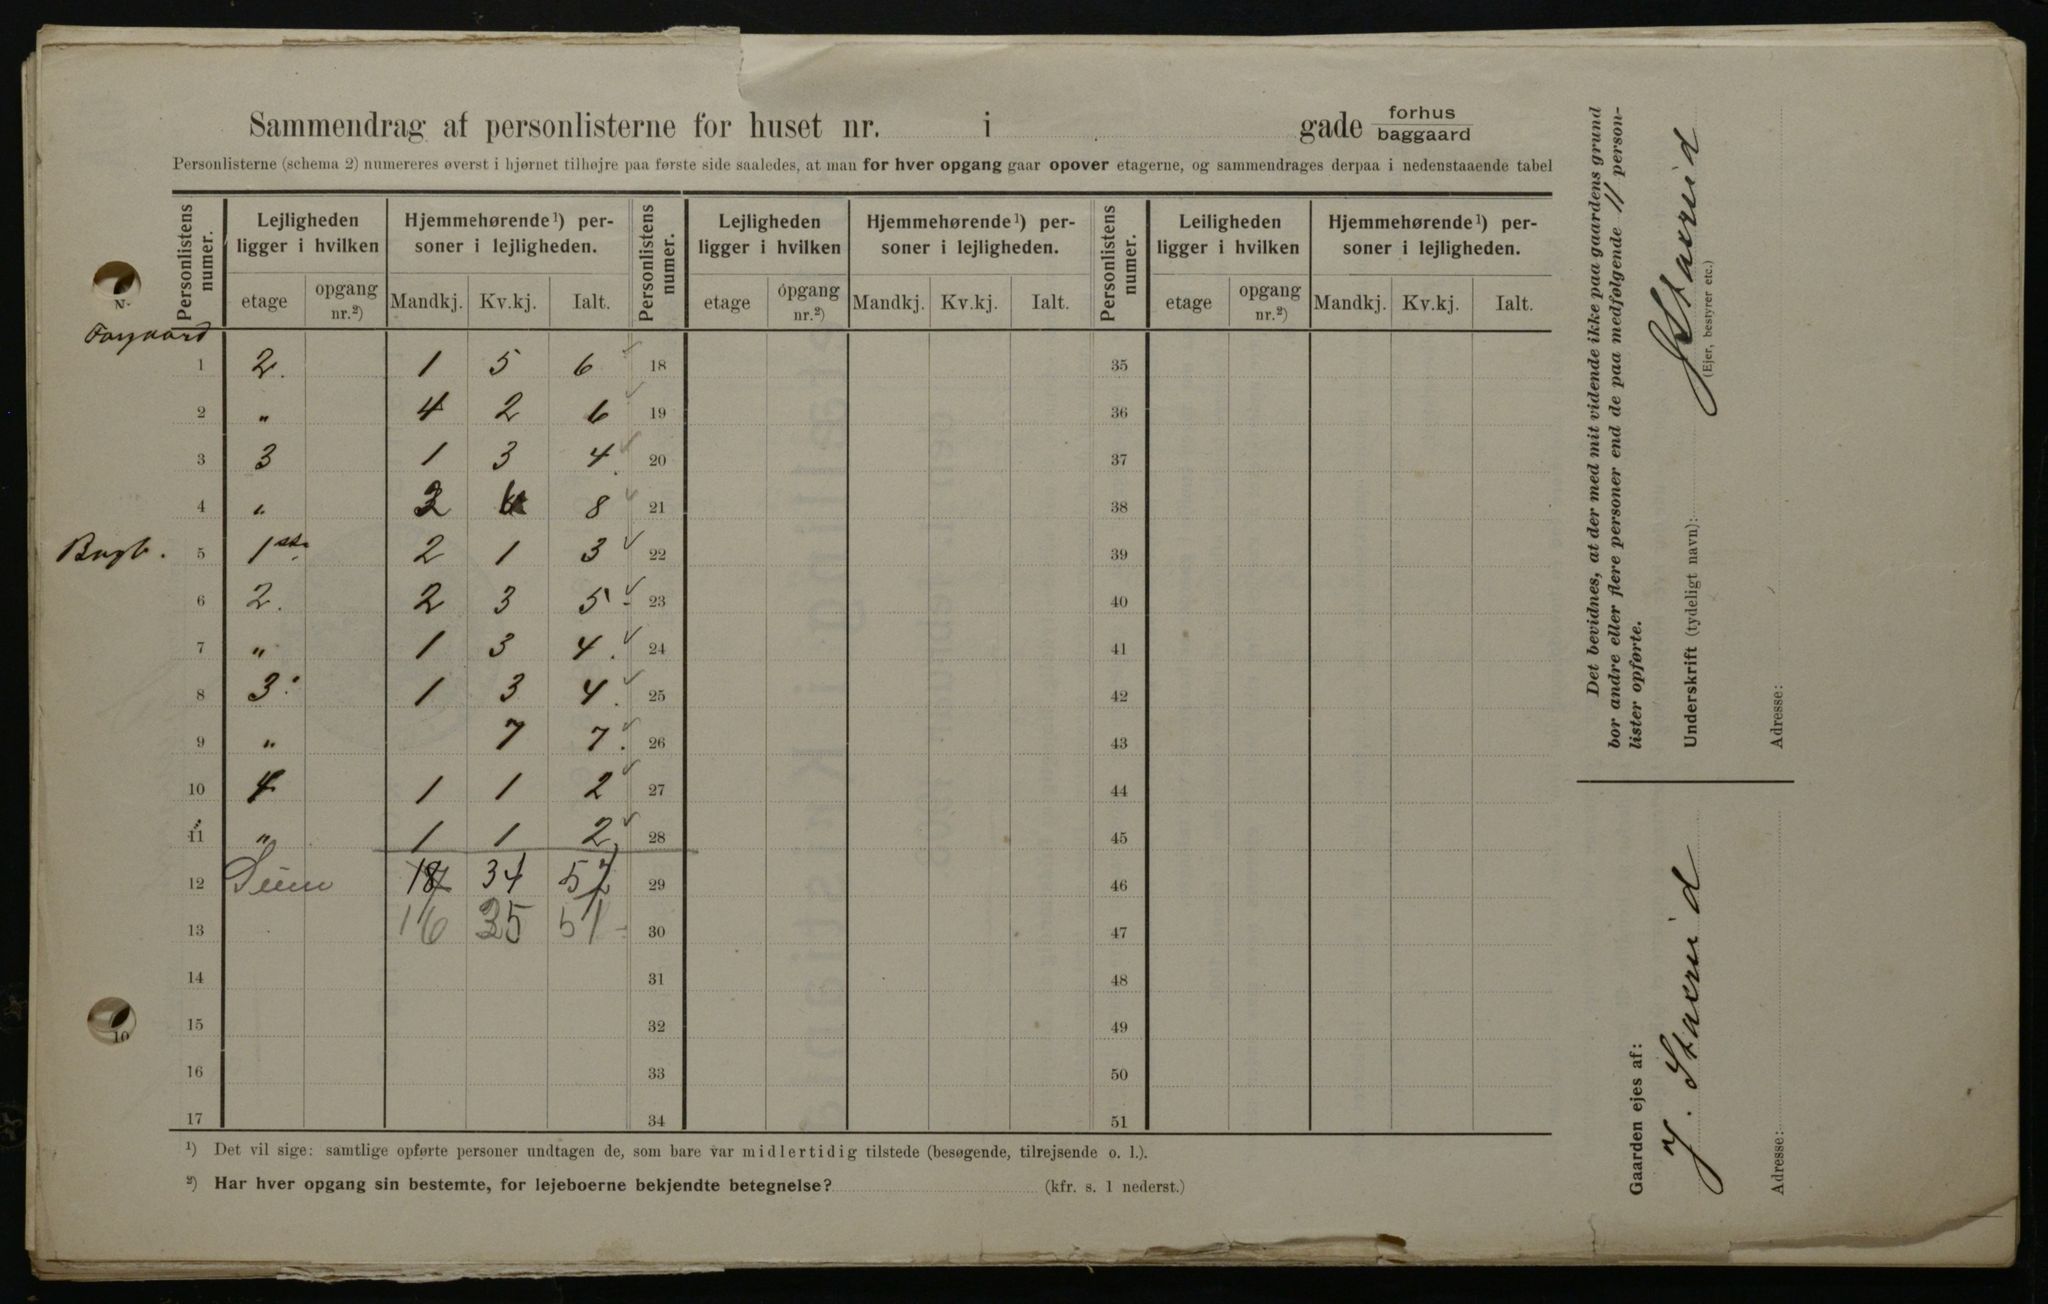 Sammendrag af personlisterne for huset nr. i gade forhus baggaard
Personlisterne (schema 2) numereres øverst i hjørnet tilhøjre paa første side saaledes, at man for hver opgang gaar opover etagerne, og sammendrages derpaa i nedenstaaende tabel
Personlistens numer. Lejligheden ligger i hvilken Hjemmehørende¹) personer i lejligheden. Personlistens numer. Lejligheden ligger i hvilken Hjemmehørende¹) personer i lejligheden. Personlistens numer. Leiligheden ligger i hvilken Hjemmehørende¹) personer i lejligheden.
etage opgang nr.²) Mandkj. Kv.kj. Ialt. etage opgang nr.²) Mandkj. Kv.kj. Ialt. etage opgang nr.²) Mandkj. Kv.kj. Ialt.
Forgaard
1 2. 1 5 6 18 35
2 " 4 2 6 19 36
3 3 1 3 4. 20 37
4 " 2 8 21 38
Bagb. 5 1ste 2 1 3 22 39
6 2. 2 3 5 23 40
7 " 1 3 4. 24 41
8 3. 1 3 4. 25 42
9 " 7 7. 26 43
10 4 1 1 2 27 44
11 " 1 1 2 28 45
12 34 29 46
13 16 35 51 30 47
14 31 48
15 32 49
16 33 50
17 34 51
¹) Det vil sige: samtlige opførte personer undtagen de, som bare var midlertidig tilstede (besøgende, tilrejsende o. l.).
²) Har hver opgang sin bestemte, for lejeboerne bekjendte betegnelse? (kfr. s. 1 nederst.)
Det bevidnes, at der med mit vidende ikke paa gaardens grund
bor andre eller flere personer end de paa medfølgende 11 person-
lister opførte.
Underskrift (tydeligt navn): J Staxrud
(Ejer, bestyrer etc.)
Adresse:
Gaarden ejes af:
J. Staxrud
Adresse: